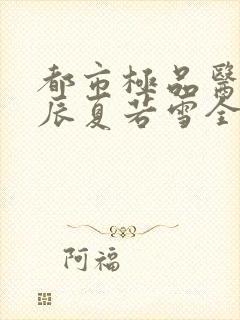 都市極品醫
辰夏若雪全
阿福